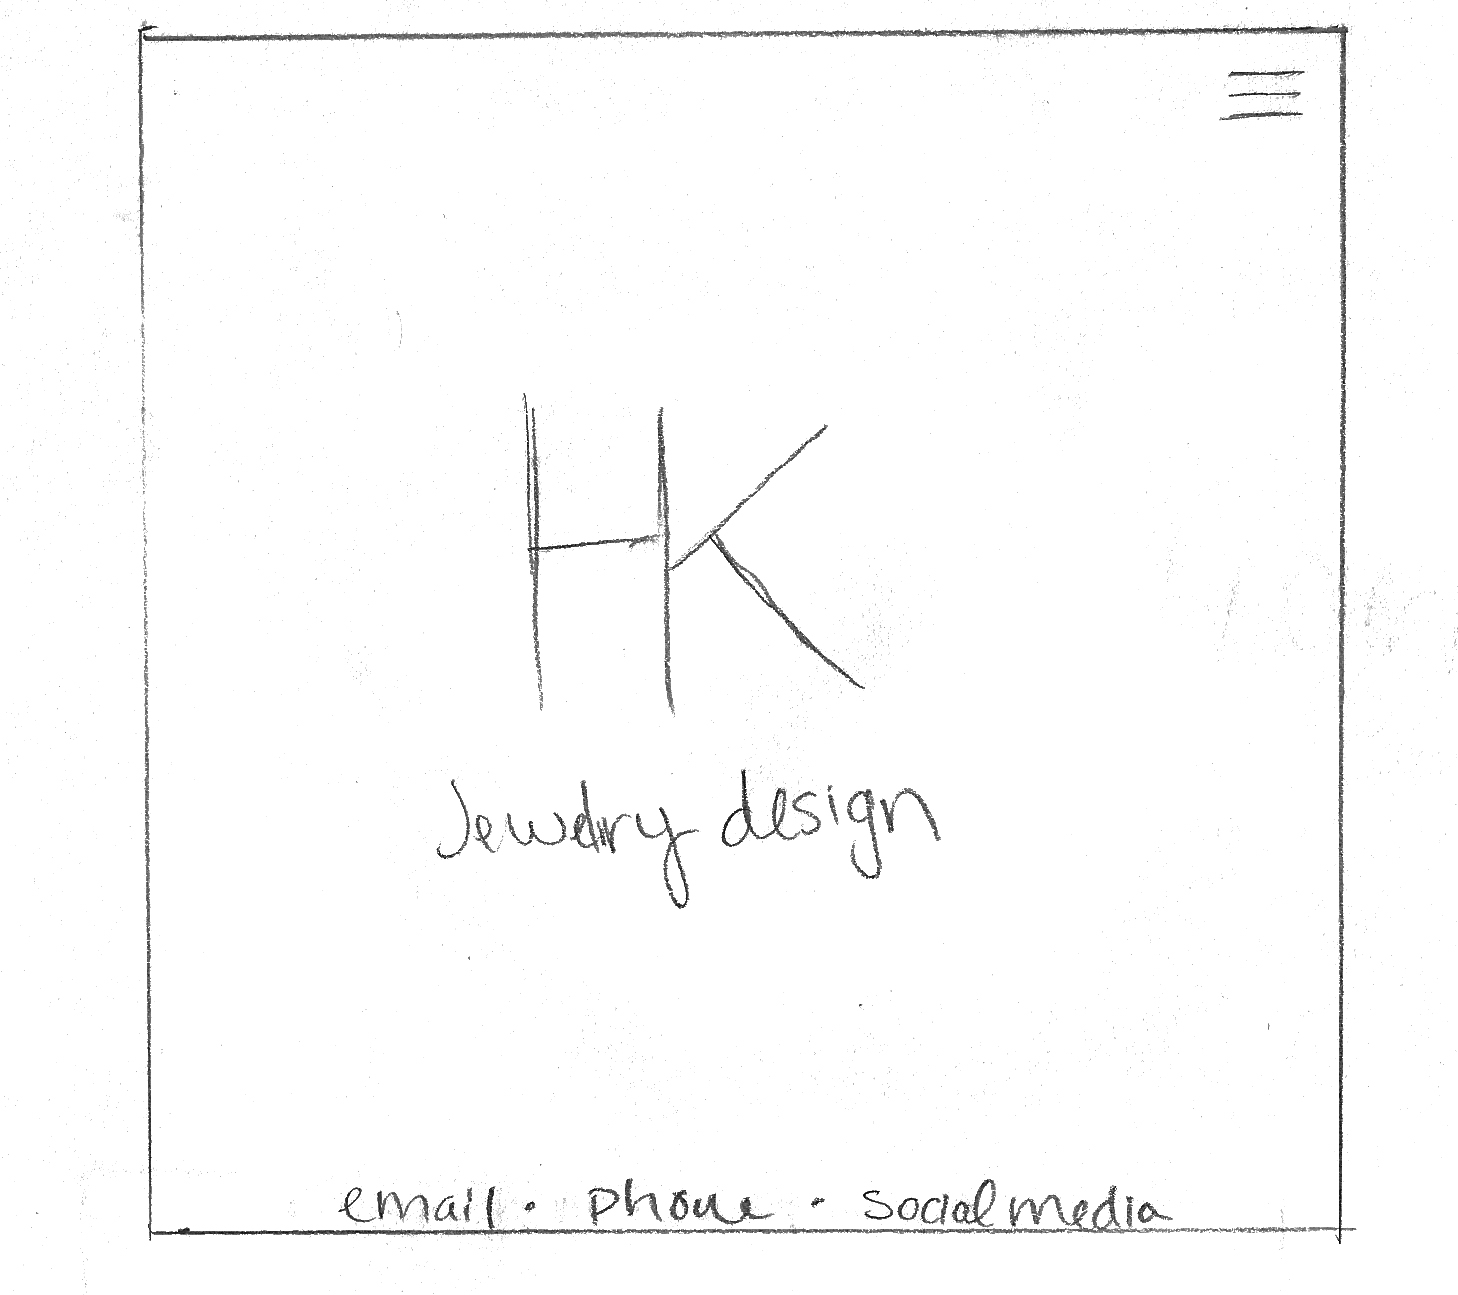 HK
Jewelry design
email · phone · social media